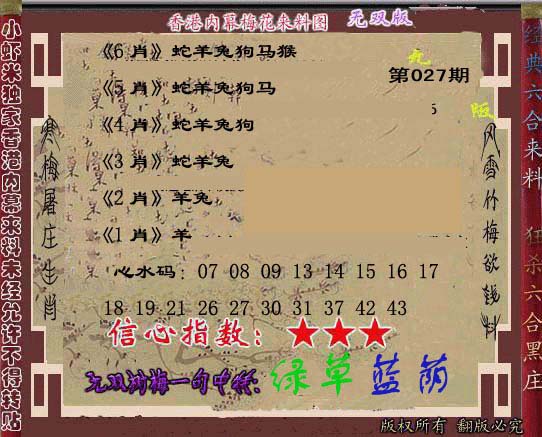 香港内幕梅花来料图 无双版
小虾米独家香港内幕来料未经允许不得转贴
经典六合来料 狂杀六合黑庄
《6 肖》蛇羊兔狗马猴
第027期
《5 肖》蛇羊兔狗马
《4 肖》蛇羊兔狗
《3 肖》蛇羊兔
《2 肖》羊兔
《1 肖》羊
寒梅屠庄生肖
风雪竹梅欲钱料
心水码：07 08 09 13 14 15 16 17
18 19 21 26 27 30 31 37 42 43
信心指数：★★★
绿草蓝荫
版权所有 翻版必究